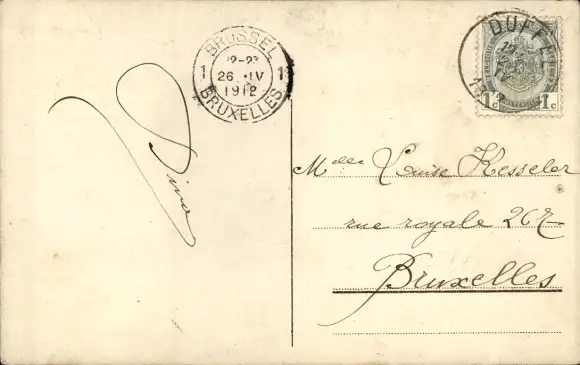 BRUSSEL
1 12-23 1
26 IV
1912
BRUXELLES
DUFFEL
1c 1c
Dina
Mdlle Louise Kesseler
rue royale 267
Bruxelles